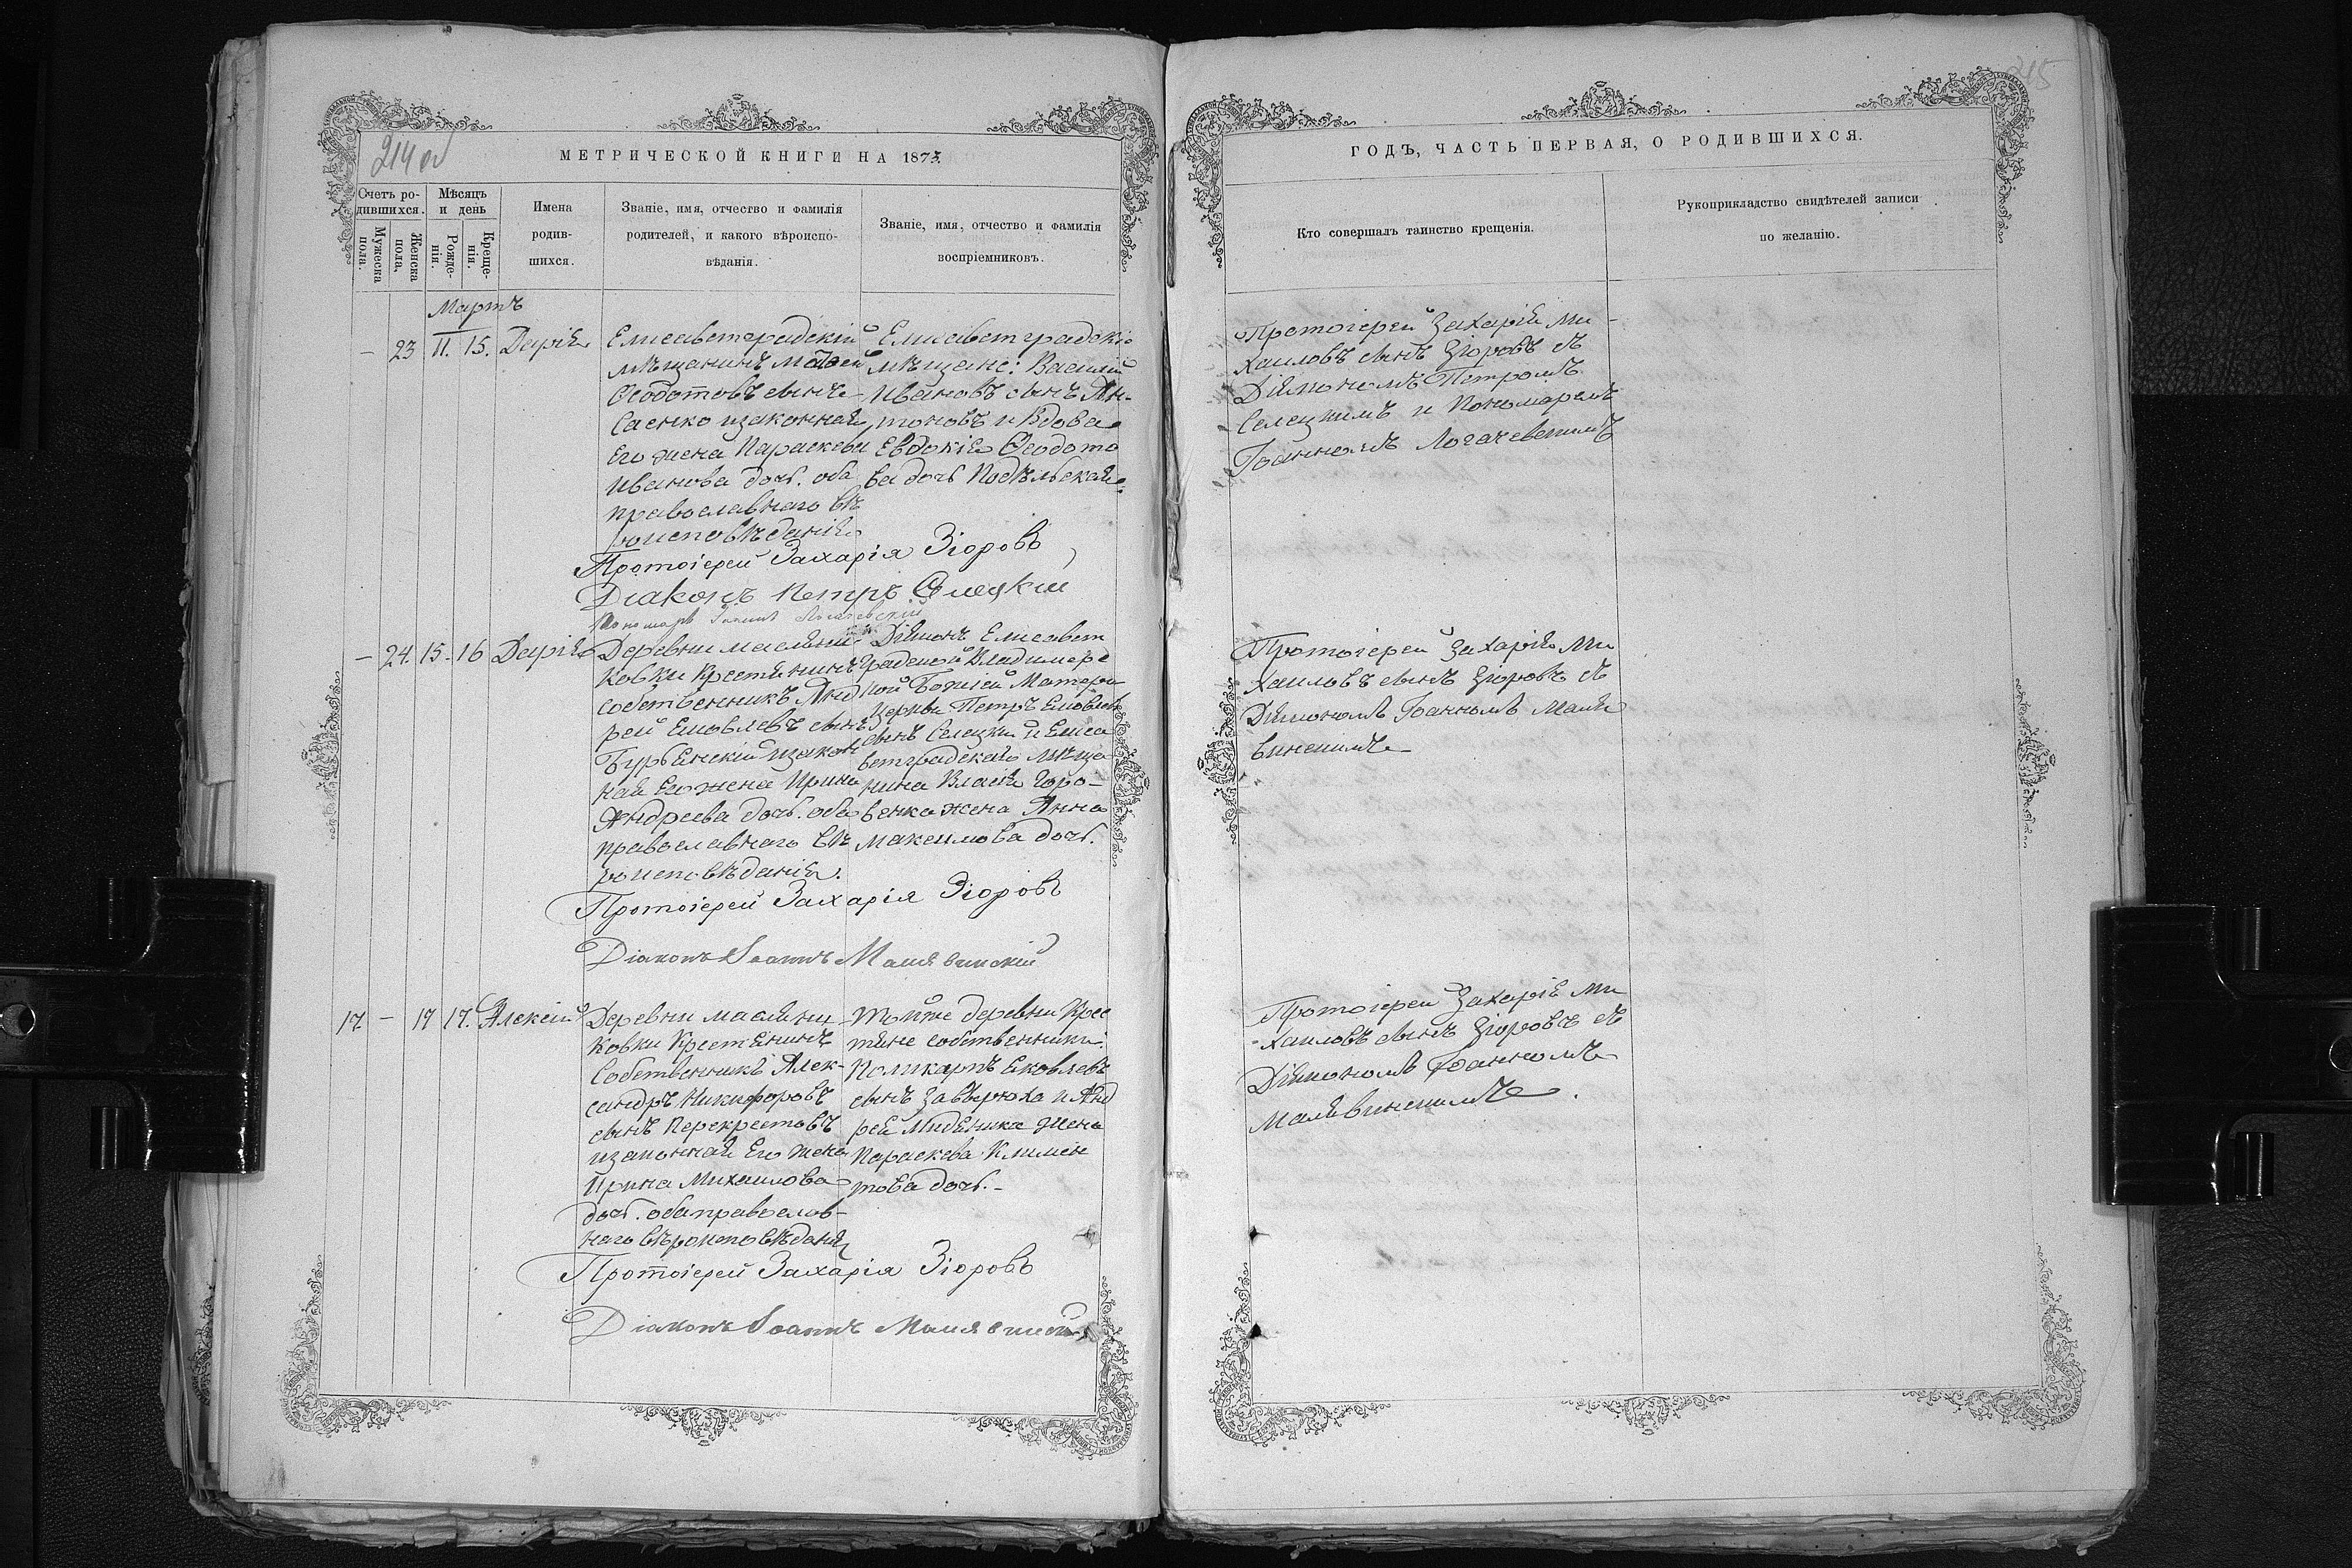 214 об
МЕТРИЧЕСКОЙ КНИГИ НА 1873.
Счетъ ро-
дившихся.
Мужеска
пола.
Женска
пола.
Мѣсяцъ
и день
Рожде-
нія.
Креще-
нія.
Имена
родив-
шихся.
Званіе, имя, отчество и фамилія
родителей, и какого вѣроиспо-
вѣданія.
Званіе, имя, отчество и фамилія
воспріемниковъ.
Мартъ
- 23 11. 15. Дарія
Елисаветградскій
мѣщанинъ Матвей
Ѳеодотовъ сынъ
Саенко изаконная
Его жена Параскева
Иванова дочь. оба
православнаго вѣ
роисповѣданія
Елисаветградскіе
мѣщане: Василій
Ивановъ сынъ Ан-
тоновъ и Вдова
Евдокія Ѳеодото
ва дочь
Протоіерей Захарія Зіоровъ
Діаконъ Петръ Селецкій
Пономарь Іоаннъ Логачевскій
- 24. 15 - 16 Дарія
Деревни Маслени
ковки Крестянинъ
собственникъ Анд
рей Еяовлевъ сынъ
изакон
ная Его жена Ирина
Андреева дочь. оба
православнаго вѣ
роисповѣданія.
Діяконъ Елисавет
градской Владимерс
кой Божіей Матери
Церкви Петръ
сынъ Селецкій и Елиса
ветградскаго мѣща
нина Власія Горо-
венка жена Анна
Максимова дочь.
Протоіерей Захарія Зіоровъ
Діаконъ Іоаннъ Малявинскій
17. - 17 17. Алексій
Деревни Маслени
ковки Крестянинъ
Собственникъ Алек-
сандръ Никифоровъ
сынъ Перекрестовъ
изаконная Его жена
Ирина Михаилова
дочь. оба православ-
наго вѣроисповѣданія
Тойже деревни Крес
тяне собственники:
Поликарпъ Ековлевъ
сынъ Завѣрюха и Анд
рея жена
Параскева Климен
това дочь. -
Протоіерей Захарія Зіоровъ
Діаконъ Іоаннъ Малявинскій
215
ГОДЪ, ЧАСТЬ ПЕРВАЯ, О РОДИВШИХСЯ.
Кто совершалъ таинство крещенія.
Рукоприкладство свидѣтелей записи
по желанію.
Протоіерей Захарія Ми-
хаиловъ сынъ Зіоровъ съ
Діякономъ Петромъ
Селецкимъ и Пономаремъ
Іоанномъ Логачевскимъ
Протоіерей Захарія Ми
хаиловъ сынъ Зіоровъ съ
Діякономъ Іоанномъ Маля
винскимъ
Протоіерей Захарія Ми
хаиловъ сынъ Зіоровъ съ
Діякономъ Іоанномъ
Малявинскимъ.